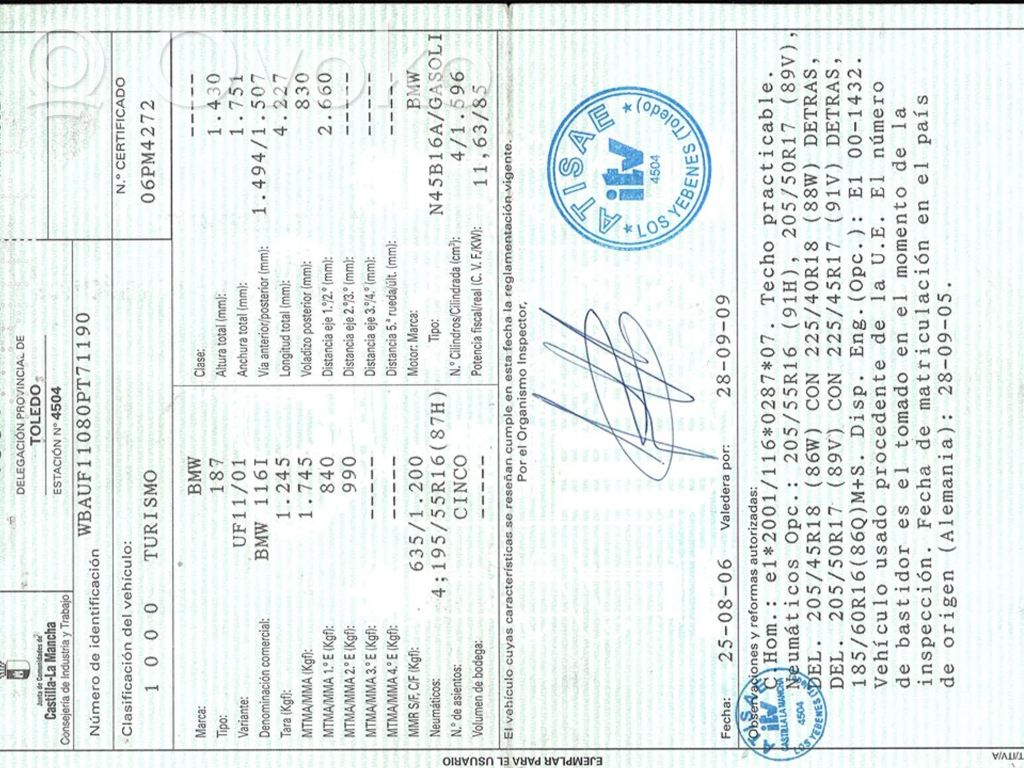 Junta de Comunidades de
Castilla-La Mancha
Consejería de Industria y Trabajo
DELEGACIÓN PROVINCIAL DE
TOLEDO
ESTACIÓN Nº 4504
Número de identificación WBAUF11080PT71190
Clasificación del vehículo:
1 0 0 0 TURISMO
N.º CERTIFICADO
06PM4272
Marca: BMW
Tipo: 187
Variante: UF11/01
Denominación comercial: BMW 116I
Tara (Kgf): 1.245
MTMA/MMA (Kgf): 1.745
MTMA/MMA 1.ª E (Kgf): 840
MTMA/MMA 2.ª E (Kgf): 990
MTMA/MMA 3.ª E (Kgf): -----
MTMA/MMA 4.ª E (Kgf): -----
MMR S/F, C/F (Kgf): 635/1.200
Neumáticos: 4;195/55R16(87H)
N.º de asientos: CINCO
Volumen de bodega: -----
Clase: -----
Altura total (mm): 1.430
Anchura total (mm): 1.751
Vía anterior/posterior (mm): 1.494/1.507
Longitud total (mm): 4.227
Voladizo posterior (mm): 830
Distancia eje 1.º/2.º (mm): 2.660
Distancia eje 2.º/3.º (mm): -----
Distancia eje 3.º/4.º (mm): -----
Distancia 5.ª rueda/últ. (mm): -----
Motor: Marca: BMW
Tipo: N45B16A/GASOLI
N.º Cilindros/Cilindrada (cm³): 4/1.596
Potencia fiscal/real (C. V. F/KW): 11,63/85
El vehículo cuyas características se reseñan cumple en esta fecha la reglamentación vigente.
Por el Organismo Inspector,
ATISAE
itv
4504
LOS YEBENES (Toledo)
Fecha: 25-08-06 Valedera por: 28-09-09
Observaciones y reformas autorizadas:
C.Hom.: e1*2001/116*0287*07. Techo practicable.
Neumáticos Opc.: 205/55R16 (91H), 205/50R17 (89V),
DEL. 205/45R18 (86W) CON 225/40R18 (88W) DETRAS,
DEL. 205/50R17 (89V) CON 225/45R17 (91V) DETRAS,
185/60R16(86Q)M+S. Disp. Eng.(Opc.): E1 00-1432.
Vehículo usado procedente de la U.E. El número
de bastidor es el tomado en el momento de la
inspección. Fecha de matriculación en el país
de origen (Alemania): 28-09-05.
ATISAE
itv
CASTILLA LA MANCHA
4504
LOS YEBENES
EJEMPLAR PARA EL USUARIO
Ovoko